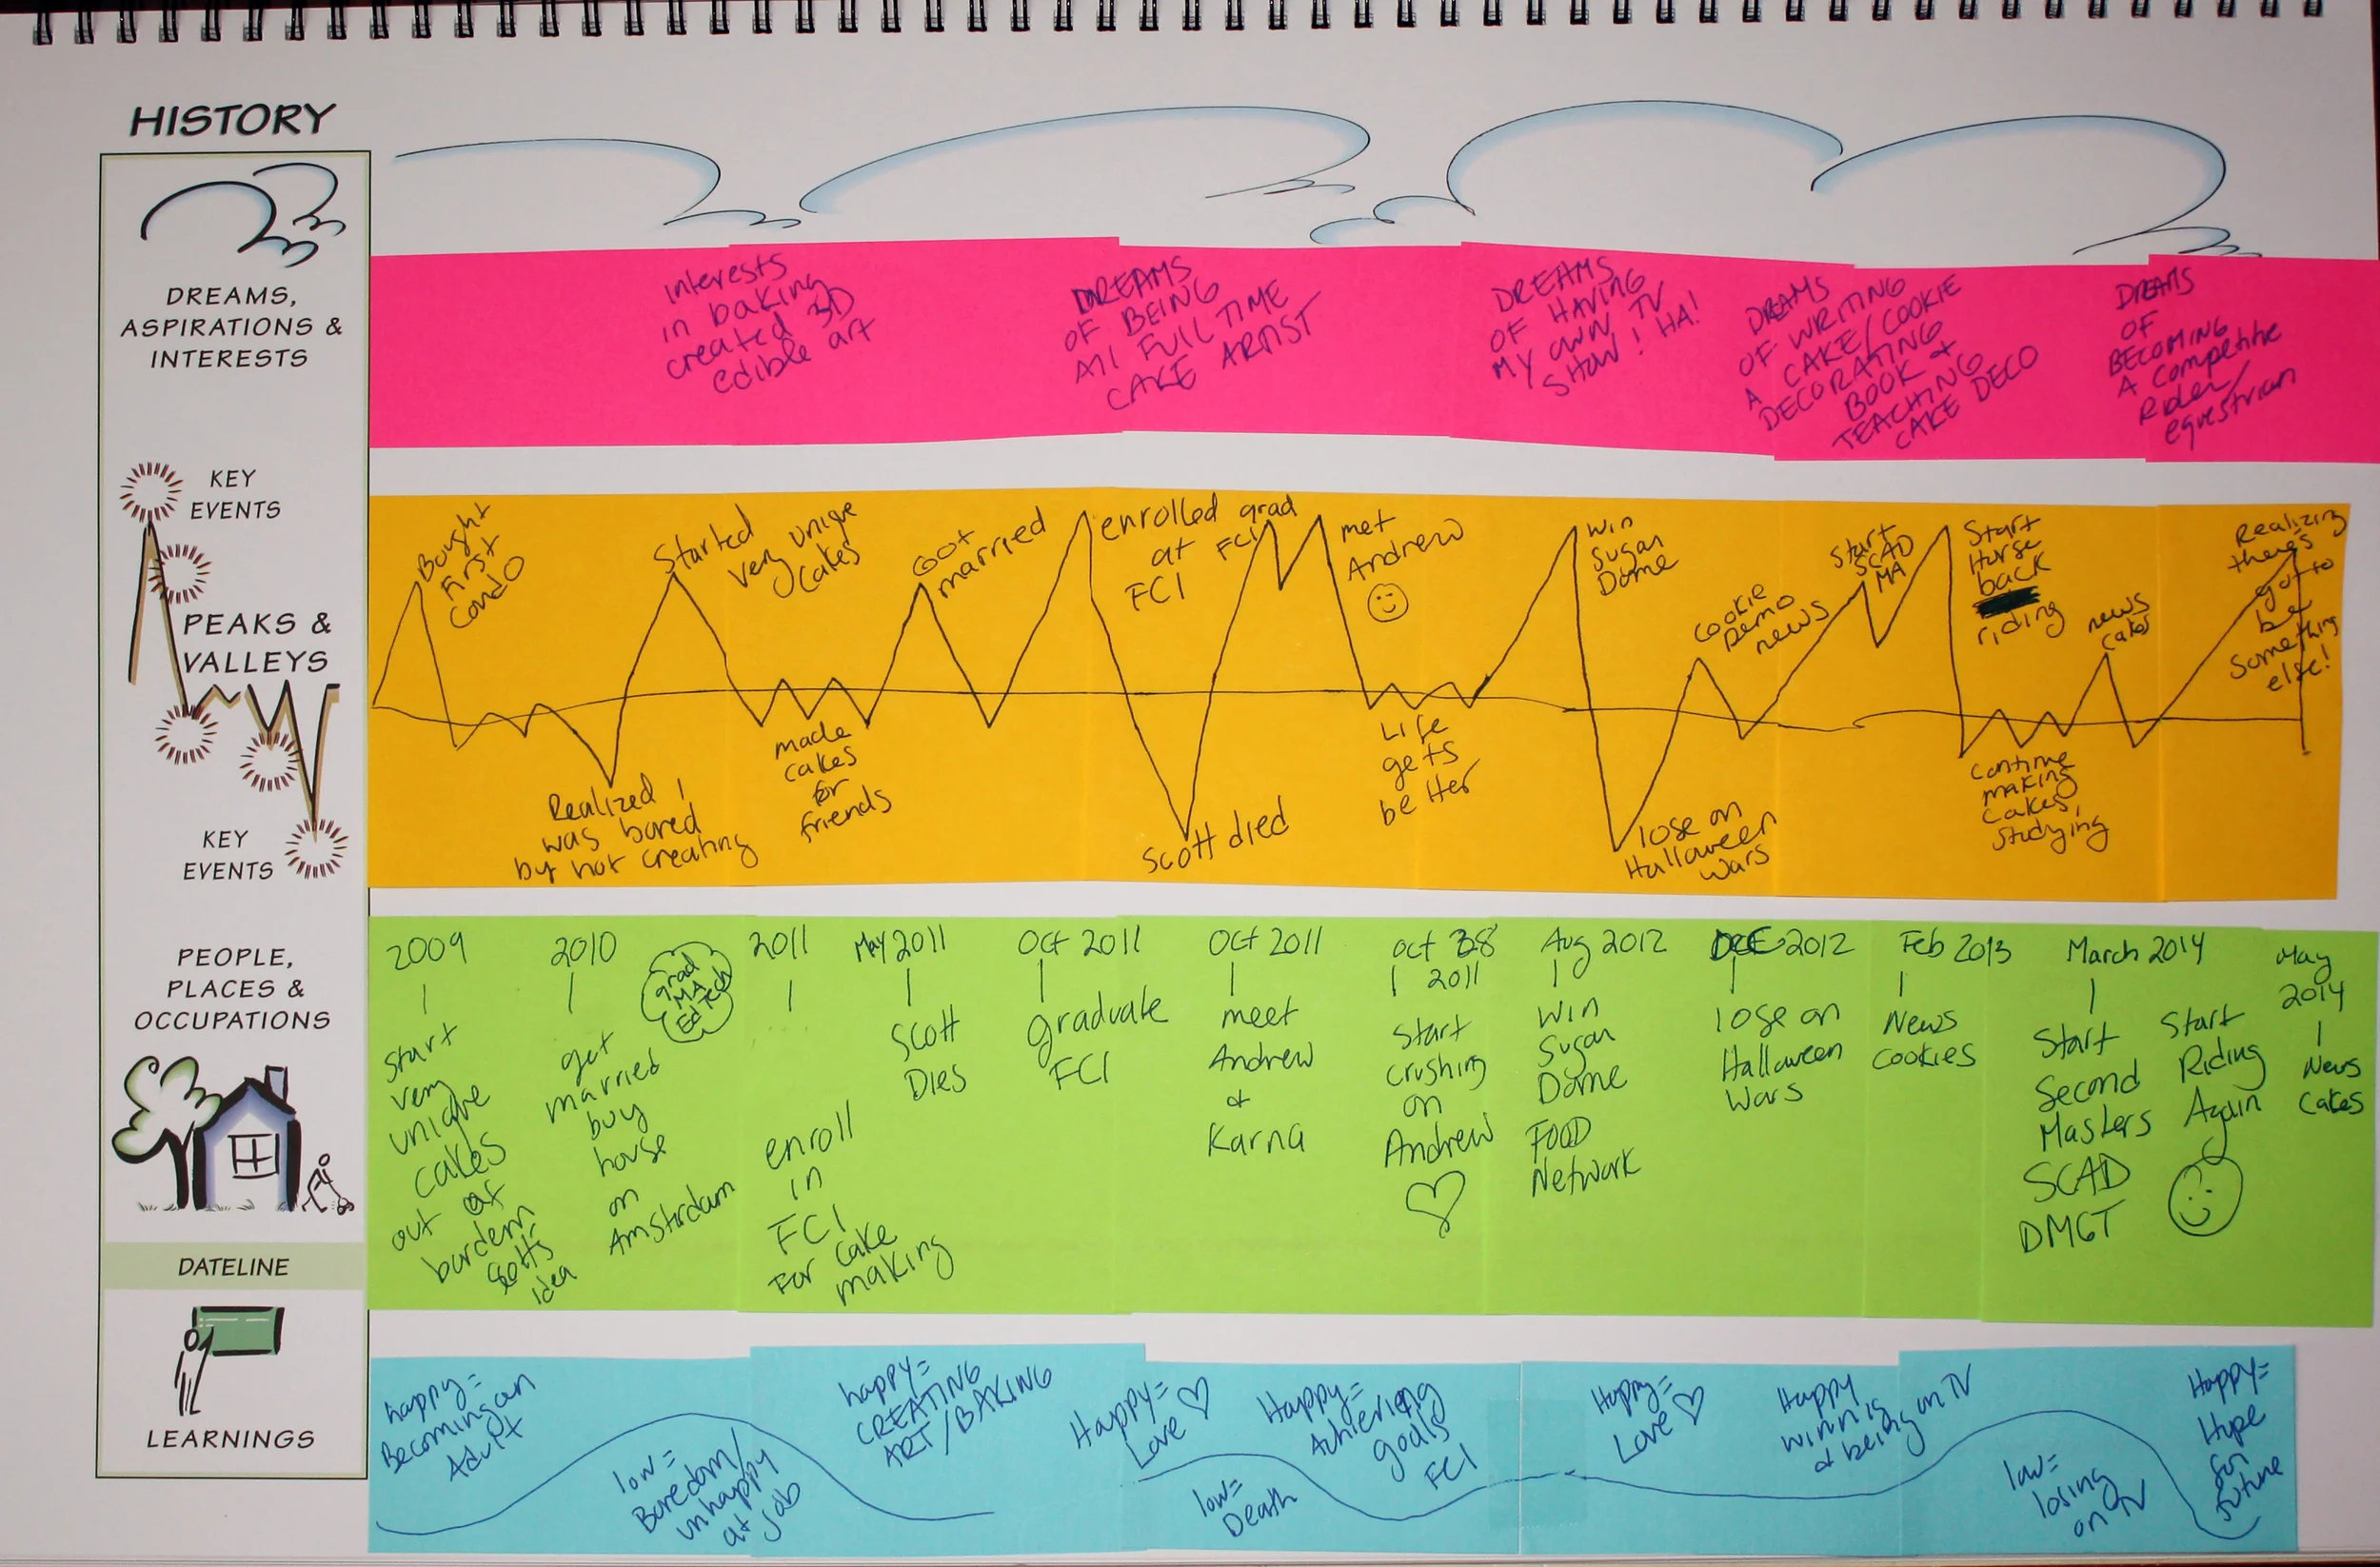 HISTORY
DREAMS,
ASPIRATIONS &
INTERESTS
Interests
in baking
created 3D
edible art
DREAMS
OF BEING
A FULL TIME
CAKE ARTIST
DREAMS
OF HAVING
MY OWN TV
SHOW! HA!
DREAMS
OF WRITING
A CAKE/COOKIE
DECORATING
BOOK &
TEACHING
CAKE DECO
DREAMS
OF
BECOMING
A competitive
Rider/
equestrian
KEY
EVENTS
PEAKS &
VALLEYS
KEY
EVENTS
Bought
First
Condo
Realized I
was bored
by not creating
Started
very unique
cakes
made
cakes
for
friends
Got
married
enrolled
at
FCI
Scott died
grad
FCI
met
Andrew
Life
gets
better
Win
Sugar
Dome
lose on
Halloween
Wars
Cookie
Demo
news
Start
SCAD
MA
Start
Horse
back
riding
continue
making
cakes,
studying
news
cakes
Realizing
there's
got to
be
something
else!
PEOPLE,
PLACES &
OCCUPATIONS
DATELINE
2009
start
very
unique
cakes
out of
bordem
Scott's
idea
2010
get
married
buy
house
on
Amsterdam
grad
MA
Ed Tech
2011
enroll
in
FCI
For Cake
making
May 2011
Scott
Dies
Oct 2011
graduate
FCI
Oct 2011
meet
Andrew
&
Karna
Oct 28
2011
Start
crushing
on
Andrew
Aug 2012
Win
Sugar
Dome
FOOD
Network
DEC 2012
lose on
Halloween
Wars
Feb 2013
News
Cookies
March 2014
Start
Second
Masters
SCAD
DMGT
Start
Riding
Again
May
2014
News
Cakes
LEARNINGS
happy=
Becoming an
Adult
low=
Boredom/
unhappy
at job
happy=
CREATING
ART/BAKING
Happy=
Love
low=
Death
Happy=
Achieving
goals
FCI
Happy=
Love
Happy
winning
& being on TV
low=
losing
on TV
Happy=
Hype
for
future